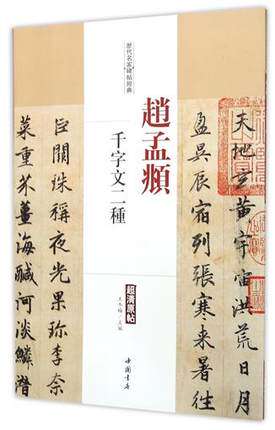 天地玄黃宇宙洪荒日月
盈昃辰宿列張寒來暑往
歷代名家碑帖經典
趙孟頫
千字文二種
超清原帖
王冬梅/主編
中國書店
巨闕珠稱夜光果珎李柰
菜重芥薑海鹹河淡鱗潛